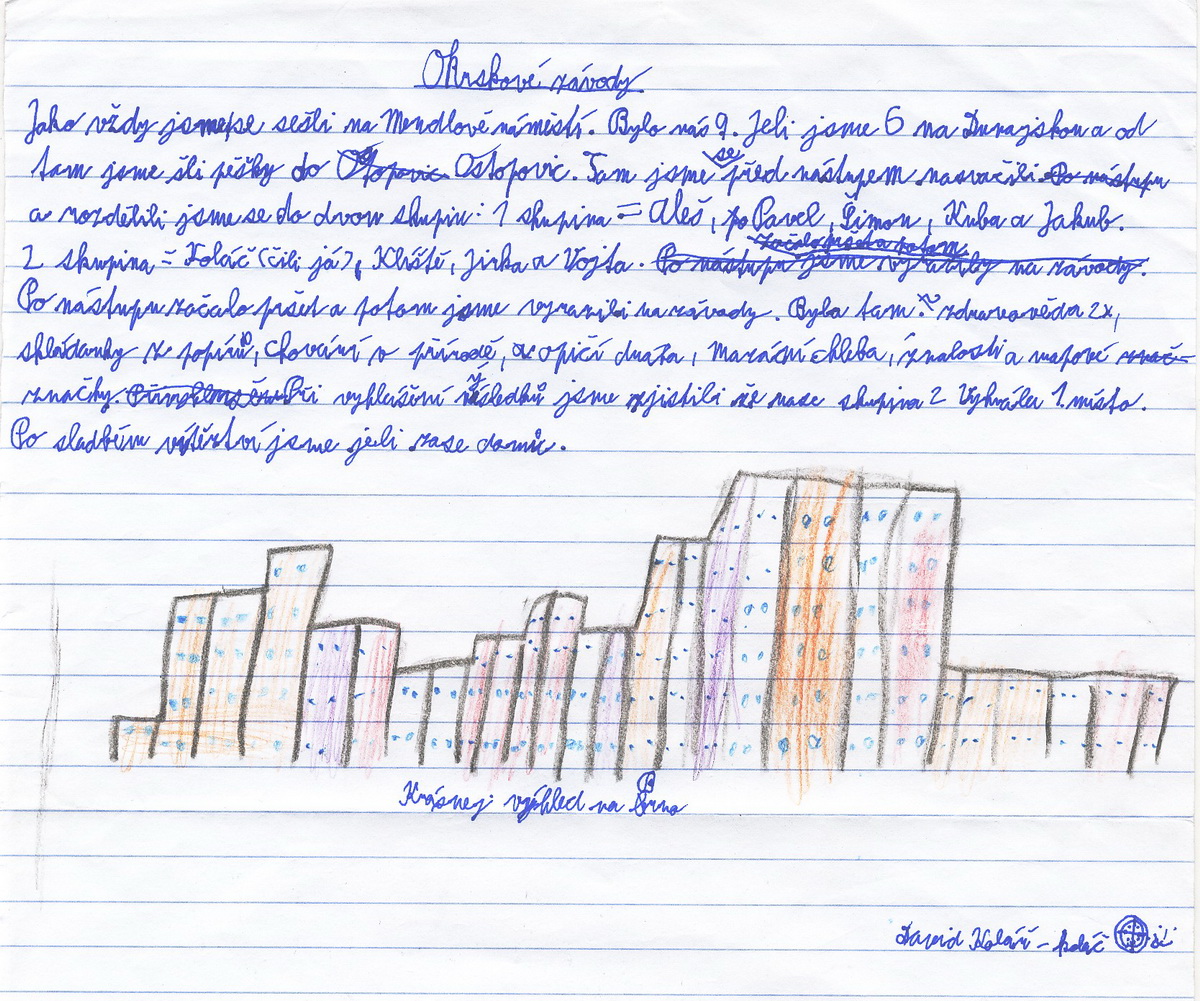 Okrskové závody
Jako vždy jsme se sešli na Mendlově náměstí. Bylo nás 9. Jeli jsme 6 na Dunajskou a od
tam jsme šli pěšky do Ostopovic. Tam jsme se před nástupem nasvačili. Po nástupu
a rozdělili jsme se do dvou skupin: 1 skupina = Aleš, Pavel, Šimon, Kuba a Jakub.
začalo pršet a potom
2 skupina = Koláč (čili já), Klíště, Jirka a Vojta. Po nástupu jsme vyrazily na závody.
Po nástupu začalo pršet a potom jsme vyrazili na závady. Byla tam: zdravověda 2x,
skládanky z papírů, chování v přírodě, opičí dráha, mazání chleba, znalosti a mapové znač-
značky. Při vyhlášení výsledků jsme zjistili že nase skupina 2 Vyhrála 1. místo.
Po sladkém vítěztví jsme jeli zase domů.
Krásnej výhled na Brno
David Kolář - koláč